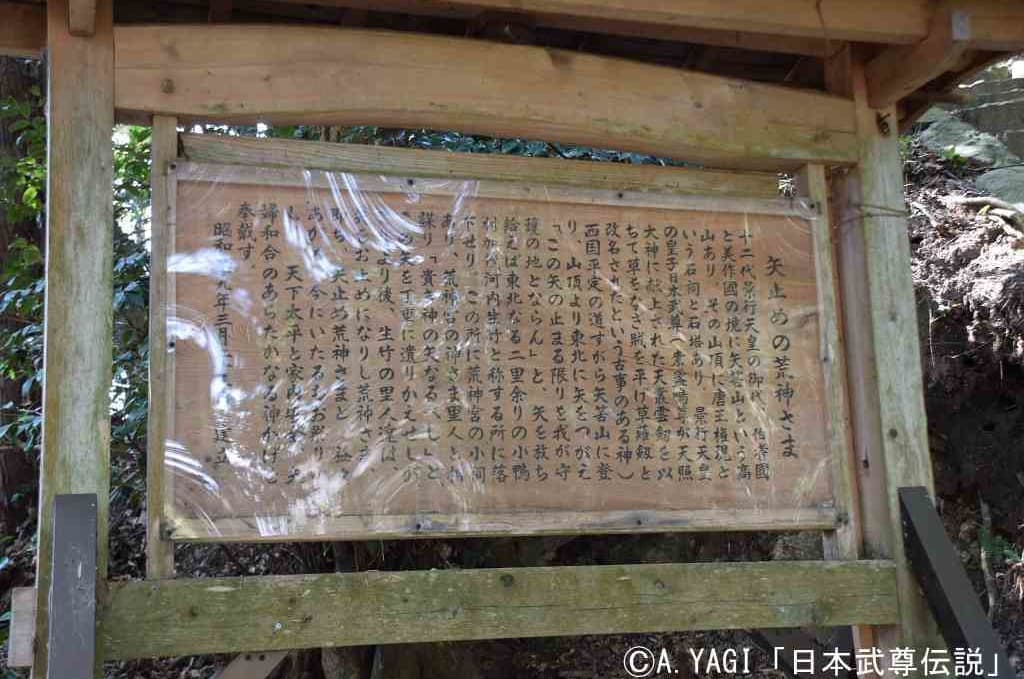 矢止めの荒神さま
十二代景行天皇の御代、備者國
と美作國の境に矢筈山という高
山あり その山頂に唐王権現と
いう石祠と石塔あり 景行天皇
の皇子日本武尊、素盞鳴尊が天照
大神に献上された天叢雲劔を以
ちて草をなぎ賊を平げ草薙劔と
改名されたという古事のある神し
西国平定の道すがら矢筈山に登
り、山頂より東北に矢をつがえ
「この矢の止まる限りを我が守
護の地とならん」と、矢を放ち
給えば東北なる二里余りの小鴨
村加谷河内生竹と称する所に落
下せり この所に荒神宮の小祠
あり、荒神宮の神さま里人と相
謀り「貴き神の矢なるべし」と
の矢を丁重に送りかえせしが
より後、生竹の里人達は、
お止めになりし荒神さま
即ち、矢止め荒神さまと
あがめ、今にいたるもお祭り
し、天下太平と家内安全、夫
婦和合のあらたかなる神かげと
奉戴す
昭和 九年三月 建立
©A. YAGI「日本武尊伝説」